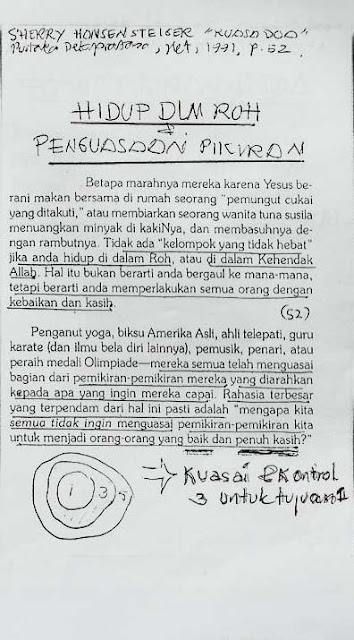 SHERRY HONSEN STEIGER "KUASA DOA"
Pustaka Delapratasa, Jkt, 1991, p. 52.
HIDUP DLM ROH
PENGUASAAN PIKIRAN
Betapa marahnya mereka karena Yesus be-
rani makan bersama di rumah seorang "pemungut cukai
yang ditakuti," atau membiarkan seorang wanita tuna susila
menuangkan minyak di kakiNya, dan membasuhnya de-
ngan rambutnya. Tidak ada "kelompok yang tidak hebat"
jika anda hidup di dalam Roh, atau di dalam Kehendak
Allah. Hal itu bukan berarti anda bergaul ke mana-mana,
tetapi berarti anda memperlakukan semua orang dengan
kebaikan dan kasih.
(52)
Penganut yoga, biksu Amerika Asli, ahli telepati, guru
karate (dan ilmu bela diri lainnya), pemusik, penari, atau
peraih medali Olimpiade—mereka semua telah menguasai
bagian dari pemikiran-pemikiran mereka yang diarahkan
kepada apa yang ingin mereka capai. Rahasia terbesar
yang terpendam dari hal ini pasti adalah "mengapa kita
semua tidak ingin menguasai pemikiran-pemikiran kita
untuk menjadi orang-orang yang baik dan penuh kasih?"
1 3 2
⇒ Kuasai & Kontrol
3 untuk tujuan 1